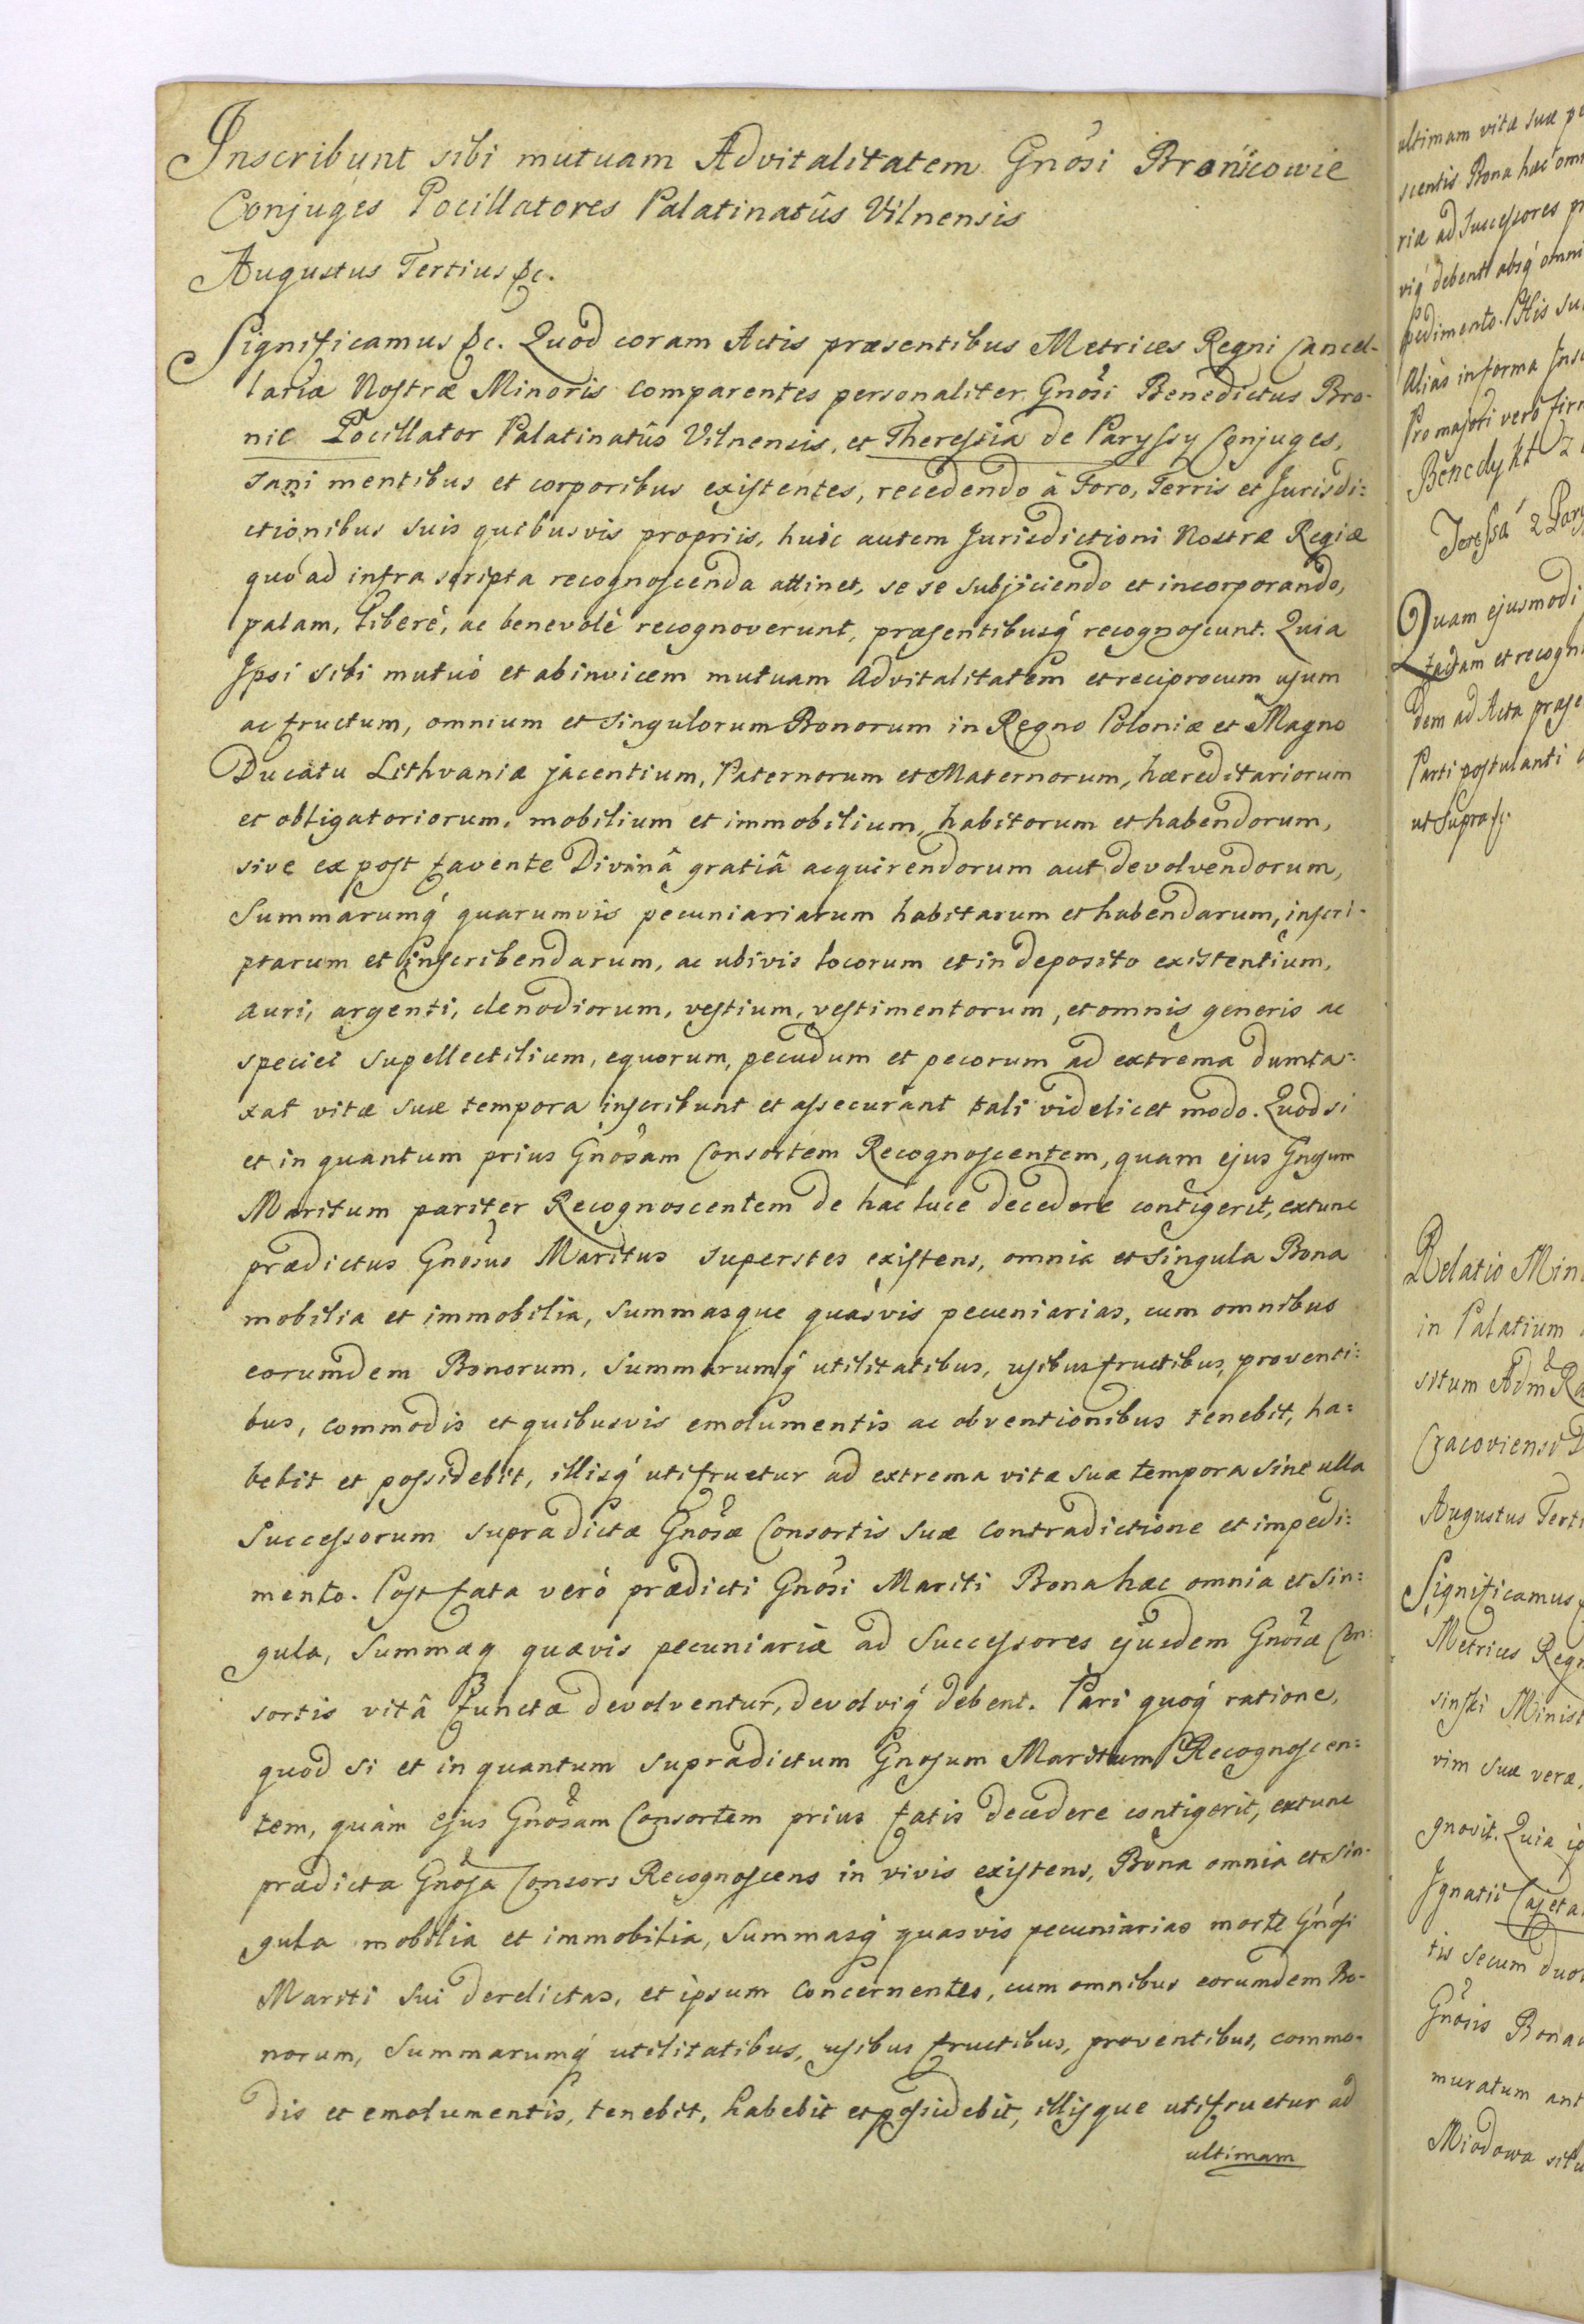 Inscribunt sibi mutuam Advitalitatem Gnosi Bronicowie
Conjuges Pocillatores Palatinatûs Vilnensis
Augustus Tertius &c.
Significamus &c. Quod coram Actis præsentibus Metrices Regni Cancel-
lariæ Nostræ Minoris comparentes personaliter Gnosi Benedictus Bro-
nic Pocillator Palatinatûs Vilnensis, et Theressia de Paryssy Conjuges,
sani mentibus et corporibus existentes, recedendo à Foro, Terris et Jurisdi=
ctionibus suis quibusvis propriis, huic autem Jurisdictioni Nostræ Regiæ
quó ad infra scripta recognoscenda attinet, se se subjiciendo et incorporando,
palam, liberè, ac benevolè recognoverunt, præsentibusq́ recognoscunt. Quia
Ipsi sibi mutuò et abinvicem mutuam Advitalitatem et reciprocum usum
ac fructum, omnium et singulorum Bonorum in Regno Poloniæ et Magno
Ducatu Lithvaniæ jacentium, Paternorum et Maternorum, hæreditariorum
et obligatoriorum, mobilium et immobilium, habitorum et habendorum,
sive ex post favente Divinâ gratiâ acquirendorum aut devolvendorum,
Summarumq́ quarumvis pecuniariarum habitarum et habendarum, inscri-
ptarum et inscribendarum, ac ubivis locorum et in deposito existentium,
auri, argenti, clenodiorum, vestium, vestimentorum, et omnis generis ac
speciei supellectilium, equorum, pecudum et pecorum ad extrema dumta-
xat vitæ suæ tempora inscribunt et assecurant tali videlicet modo. Quod si
et in quantum prius Gnosam Consortem Recognoscentem, quam ejus Gnosum
Maritum pariter Recognoscentem de hac luce decedere contigerit, extunc
prædictus Gnosus Maritus superstes existens, omnia et singula Bona
mobilia et immobilia, summasque quasvis pecuniarias, cum omnibus
eorumdem Bonorum, Summarumq́ utilitatibus, usibusfructibus, proventi=
bus, commodis et quibusvis emolumentis ac obventionibus tenebit, ha=
bebit et possidebit, illisq́ utifruetur ad extrema vitæ suæ tempora sine ulla
Successorum supradictæ Gnosæ Consortis suæ contradictione et impedi=
mento. Post fata verò prædicti Gnosi Mariti Bona hæc omnia et sin=
gula, Summæq quævis pecuniariæ ad Successores ejusdem Gnosæ Con=
sortis vitâ functæ devolventur, devolviq́ debent. Pari quoq́ ratione,
quod si et in quantum supradictum Gnosum Maritum Recognoscen=
tem, quàm ejus Gnosam Consortem prius fatis decedere contigerit, extunc
prædicta Gnosa Consors Recognoscens in vivis existens, Bona omnia et sin-
gula mobilia et immobilia, Summasq́ quasvis pecuniarias morte Gnosi
Mariti sui derelictas, et ipsum concernentes, cum omnibus eorumdem Bo-
norum, Summarumq́ utilitatibus, usibus fructibus, proventibus, commo-
dis et emolumentis, tenebit, habebit et possidebit, illisque utifruetur ad
ultimam
ultimam vitæ suæ
scentis Bona hæc
riæ ad Successores
viq́ debent absq́ omni
pedimento. His
Alias in forma
Pro majori vero
Benedykt
Teressa z
Quam ejusmodi
factam et
dem ad Acta
Parti postulanti
ut supra &c.
Relatio
in Palatium
situm Adm
Augustus
Significamus
Metrices
sinski
vim suæ veræ,
gnovit. Quia
Ignatii
tis secum
Gnosis
muratum
Miodowa